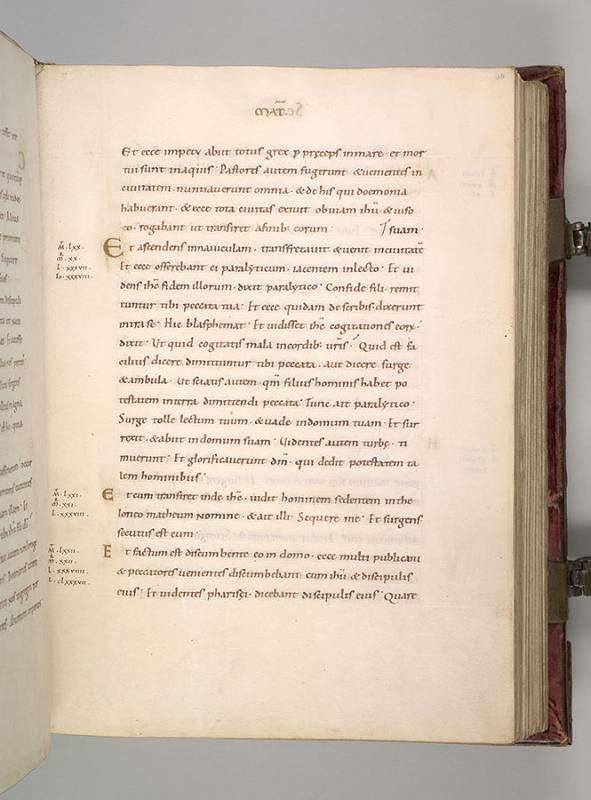 MAT̄
Et ecce impetu abiit totus grex p preceps inmare · et mor
tui sunt inaquis · Pastores autem fugerunt · &uenientes in
ciuitatem · nuntiauerunt omnia · &de his qui doemonia
habuerant · &ecce tota ciuitas exiuit obuiam ihū &uiso
eo · rogabant ut transiret afinib; eorum · suam ·
Et ascendens innauiculam · transfretauit &uenit inciuitatē
Et ecce offerebant ei paralyticum · iacentem inlecto · Et ui
dens ihc̄ fidem illorum · dixit paralytico · Confide fili · remit
tuntur tibi peccata tua · Et ecce quidam describis · dixerunt
intra se · Hic blasphemat · Et uidisset ihc̄ cogitationes eorx ·
dixit · Ut quid cogitatis mala incordib; ur̄is · Quid est fa
cilius dicere · dimittuntur tibi peccata · aut dicere surge
&ambula · Ut sciatis autem · qm̄ filius hominis habet po
testatem interra dimittendi peccata · Tunc ait paralytico ·
Surge tolle lectum tuum · &uade indomum tuam · Et sur
rexit · &abiit indomum suam · Uidentes autem turbę · ti
muerunt · Et glorificauerunt dm̄ · qui dedit potestatem ta
lem hominibus ·
Et cum transiret inde ihc̄ · uidit hominem sedentem inthe
loneo matheum nomine · &ait illi · Sequere me · Et surgens
secutus est eum ·
Et factum est discumbente eo in domo · ecce multi publicani
&peccatores uenientes discumbebant cum ihū &discipulis
eius · Et uidentes pharisęi · dicebant discipulis eius · Quare
M̄ · LXX ·
M̄ · XX ·
L · XXXVII ·
Io · XXXVIII ·
M̄ · LXXI ·
M̄ · XXI ·
L · XXXVIII ·
M̄ · LXXII ·
M̄ · XXII ·
L · XXXVIIII ·
L · CLXXXVI ·